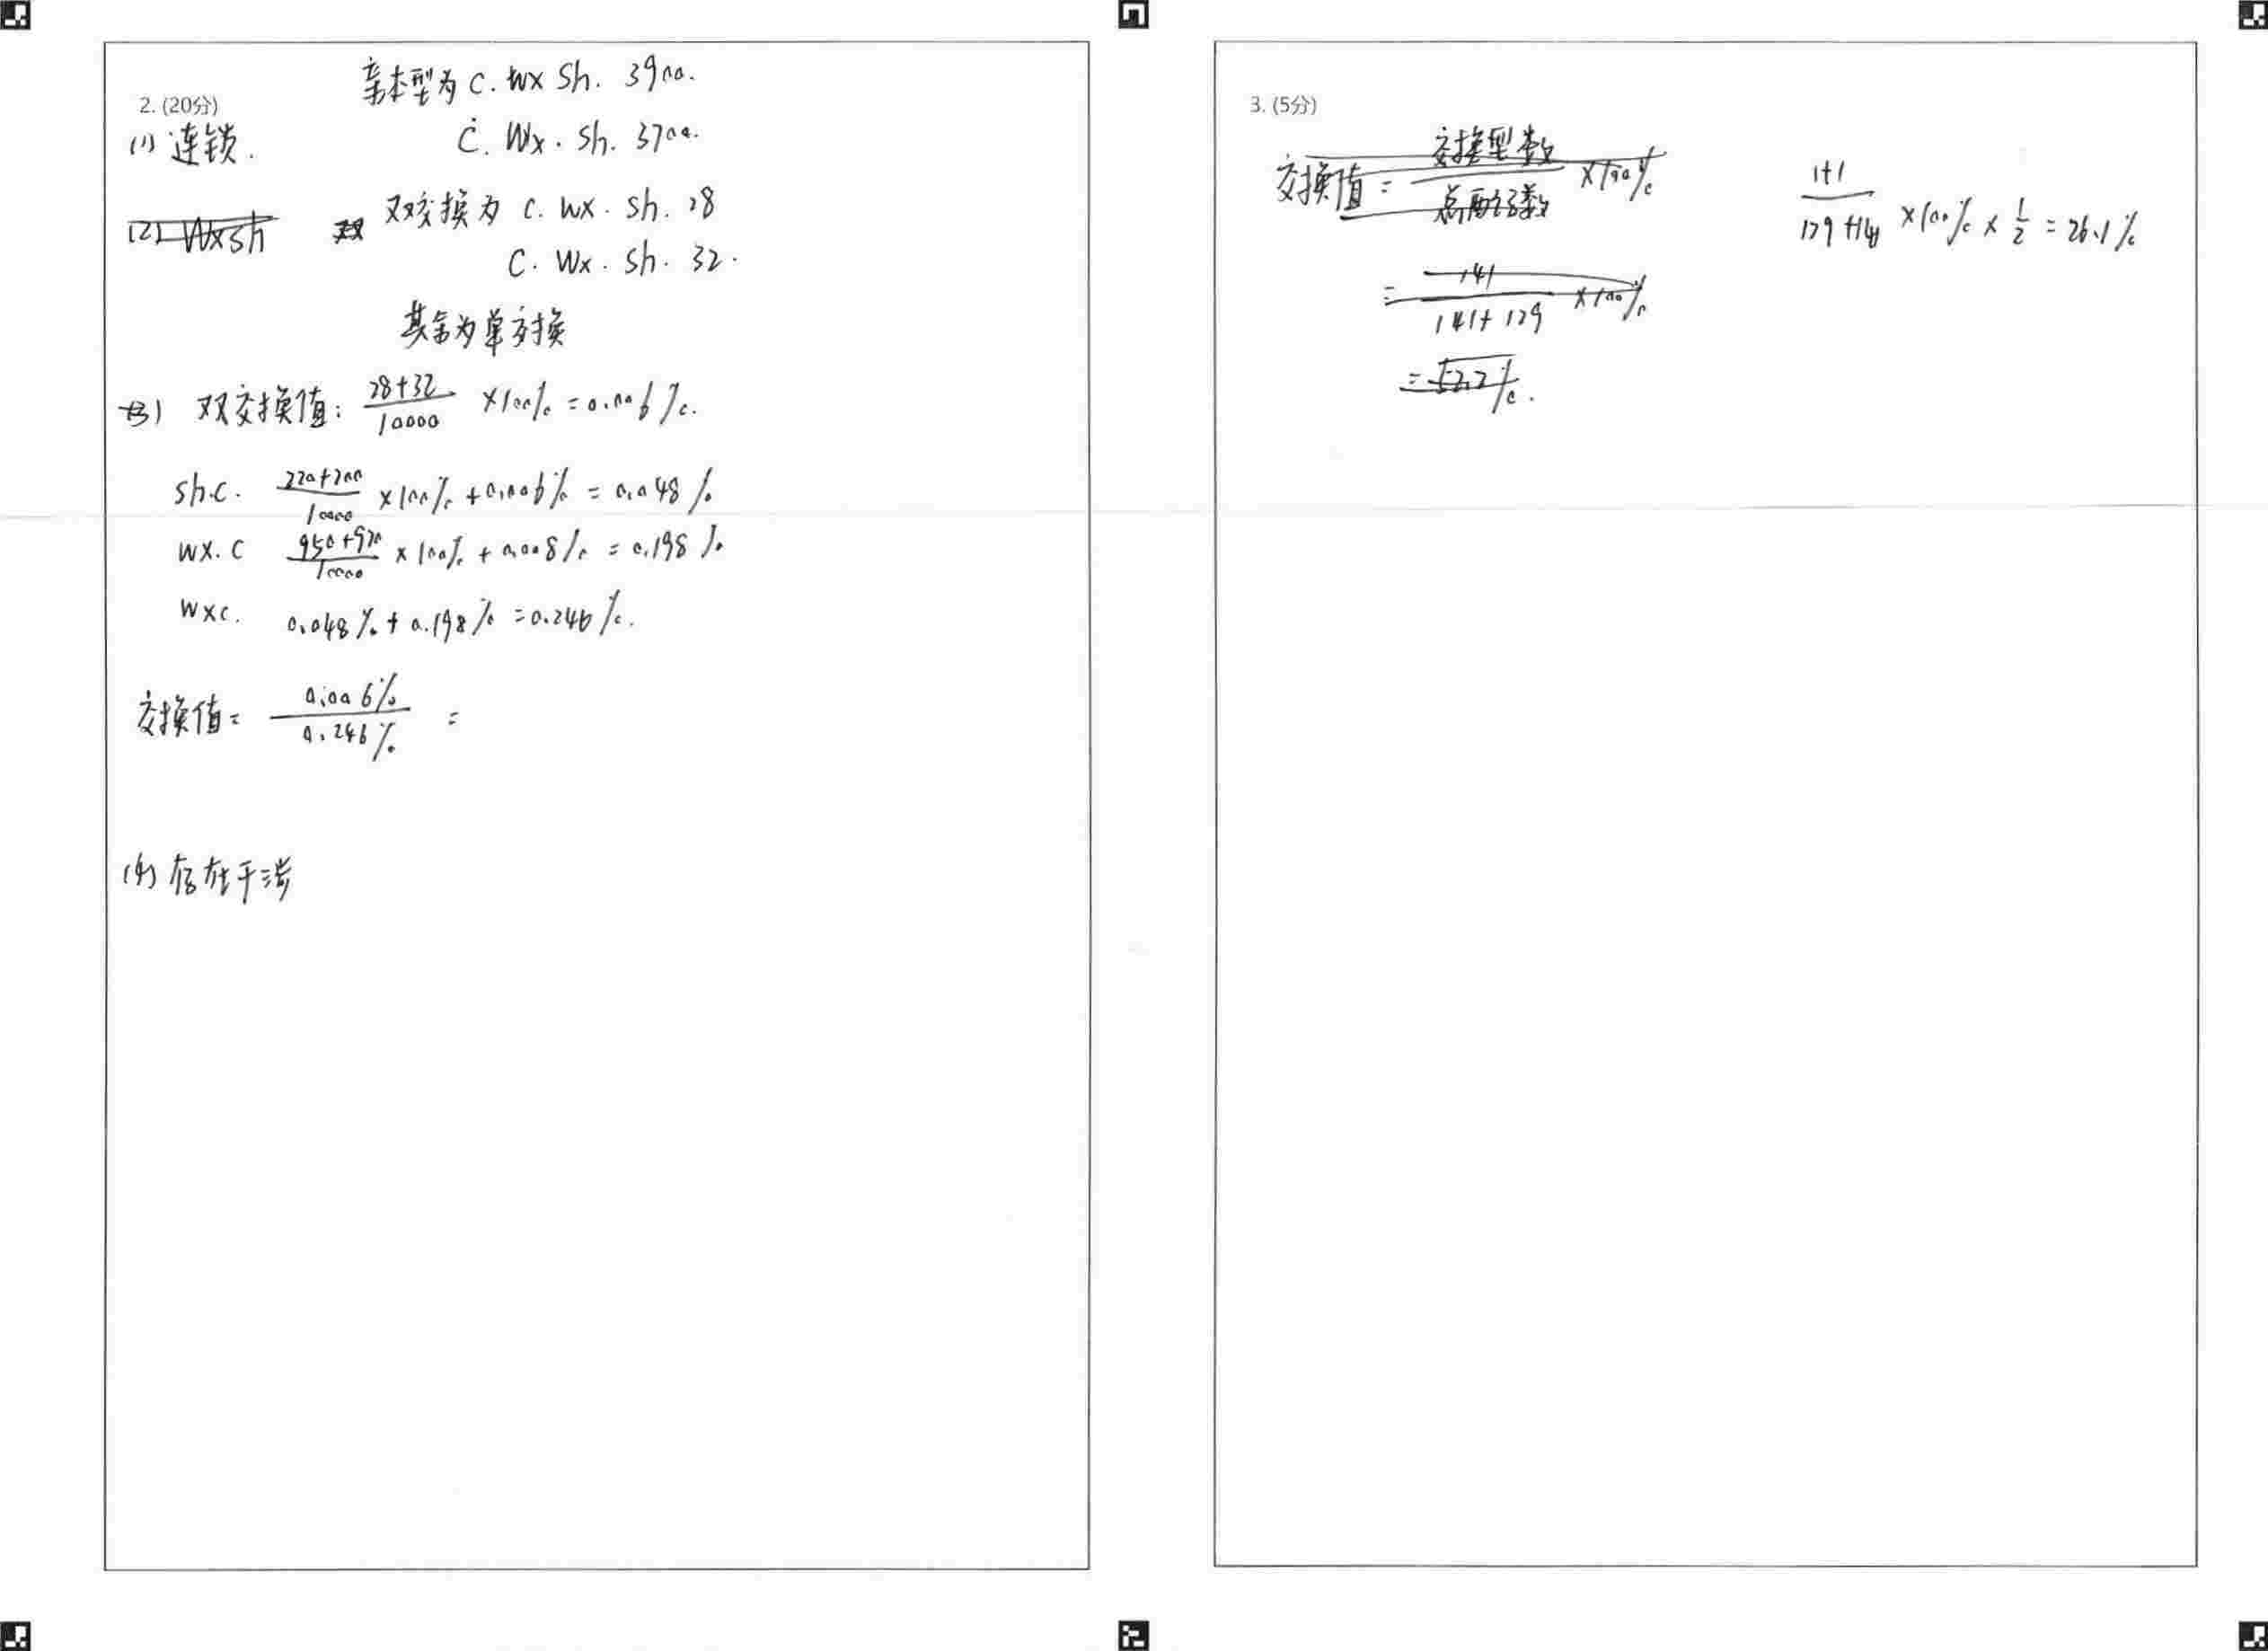 2. (20分)
亲本型为 C. wx sh. 3900.
(1) 连锁.
C. Wx. sh. 3700.
(2) Wxsh
双交换为 C. wx. sh. 28
C. Wx. sh. 32.
其余为单交换
(3) 双交换值: 28+32/10000 ×100% =0.006%.
sh.c. 220+200/10000 ×100% +0.006% = 0.048%
wx.c 950+970/10000 ×100% + 0.008% = 0.198%
wxc. 0.048% + 0.198% =0.246%.
交换值= 0.006%/0.246% =
(4) 存在干涉
3. (5分)
交换值= 交换型数/总配子数 ×100%
= 141/141+129 ×100%
= 52.2%.
141/129+141 ×100% × 1/2 = 26.1%